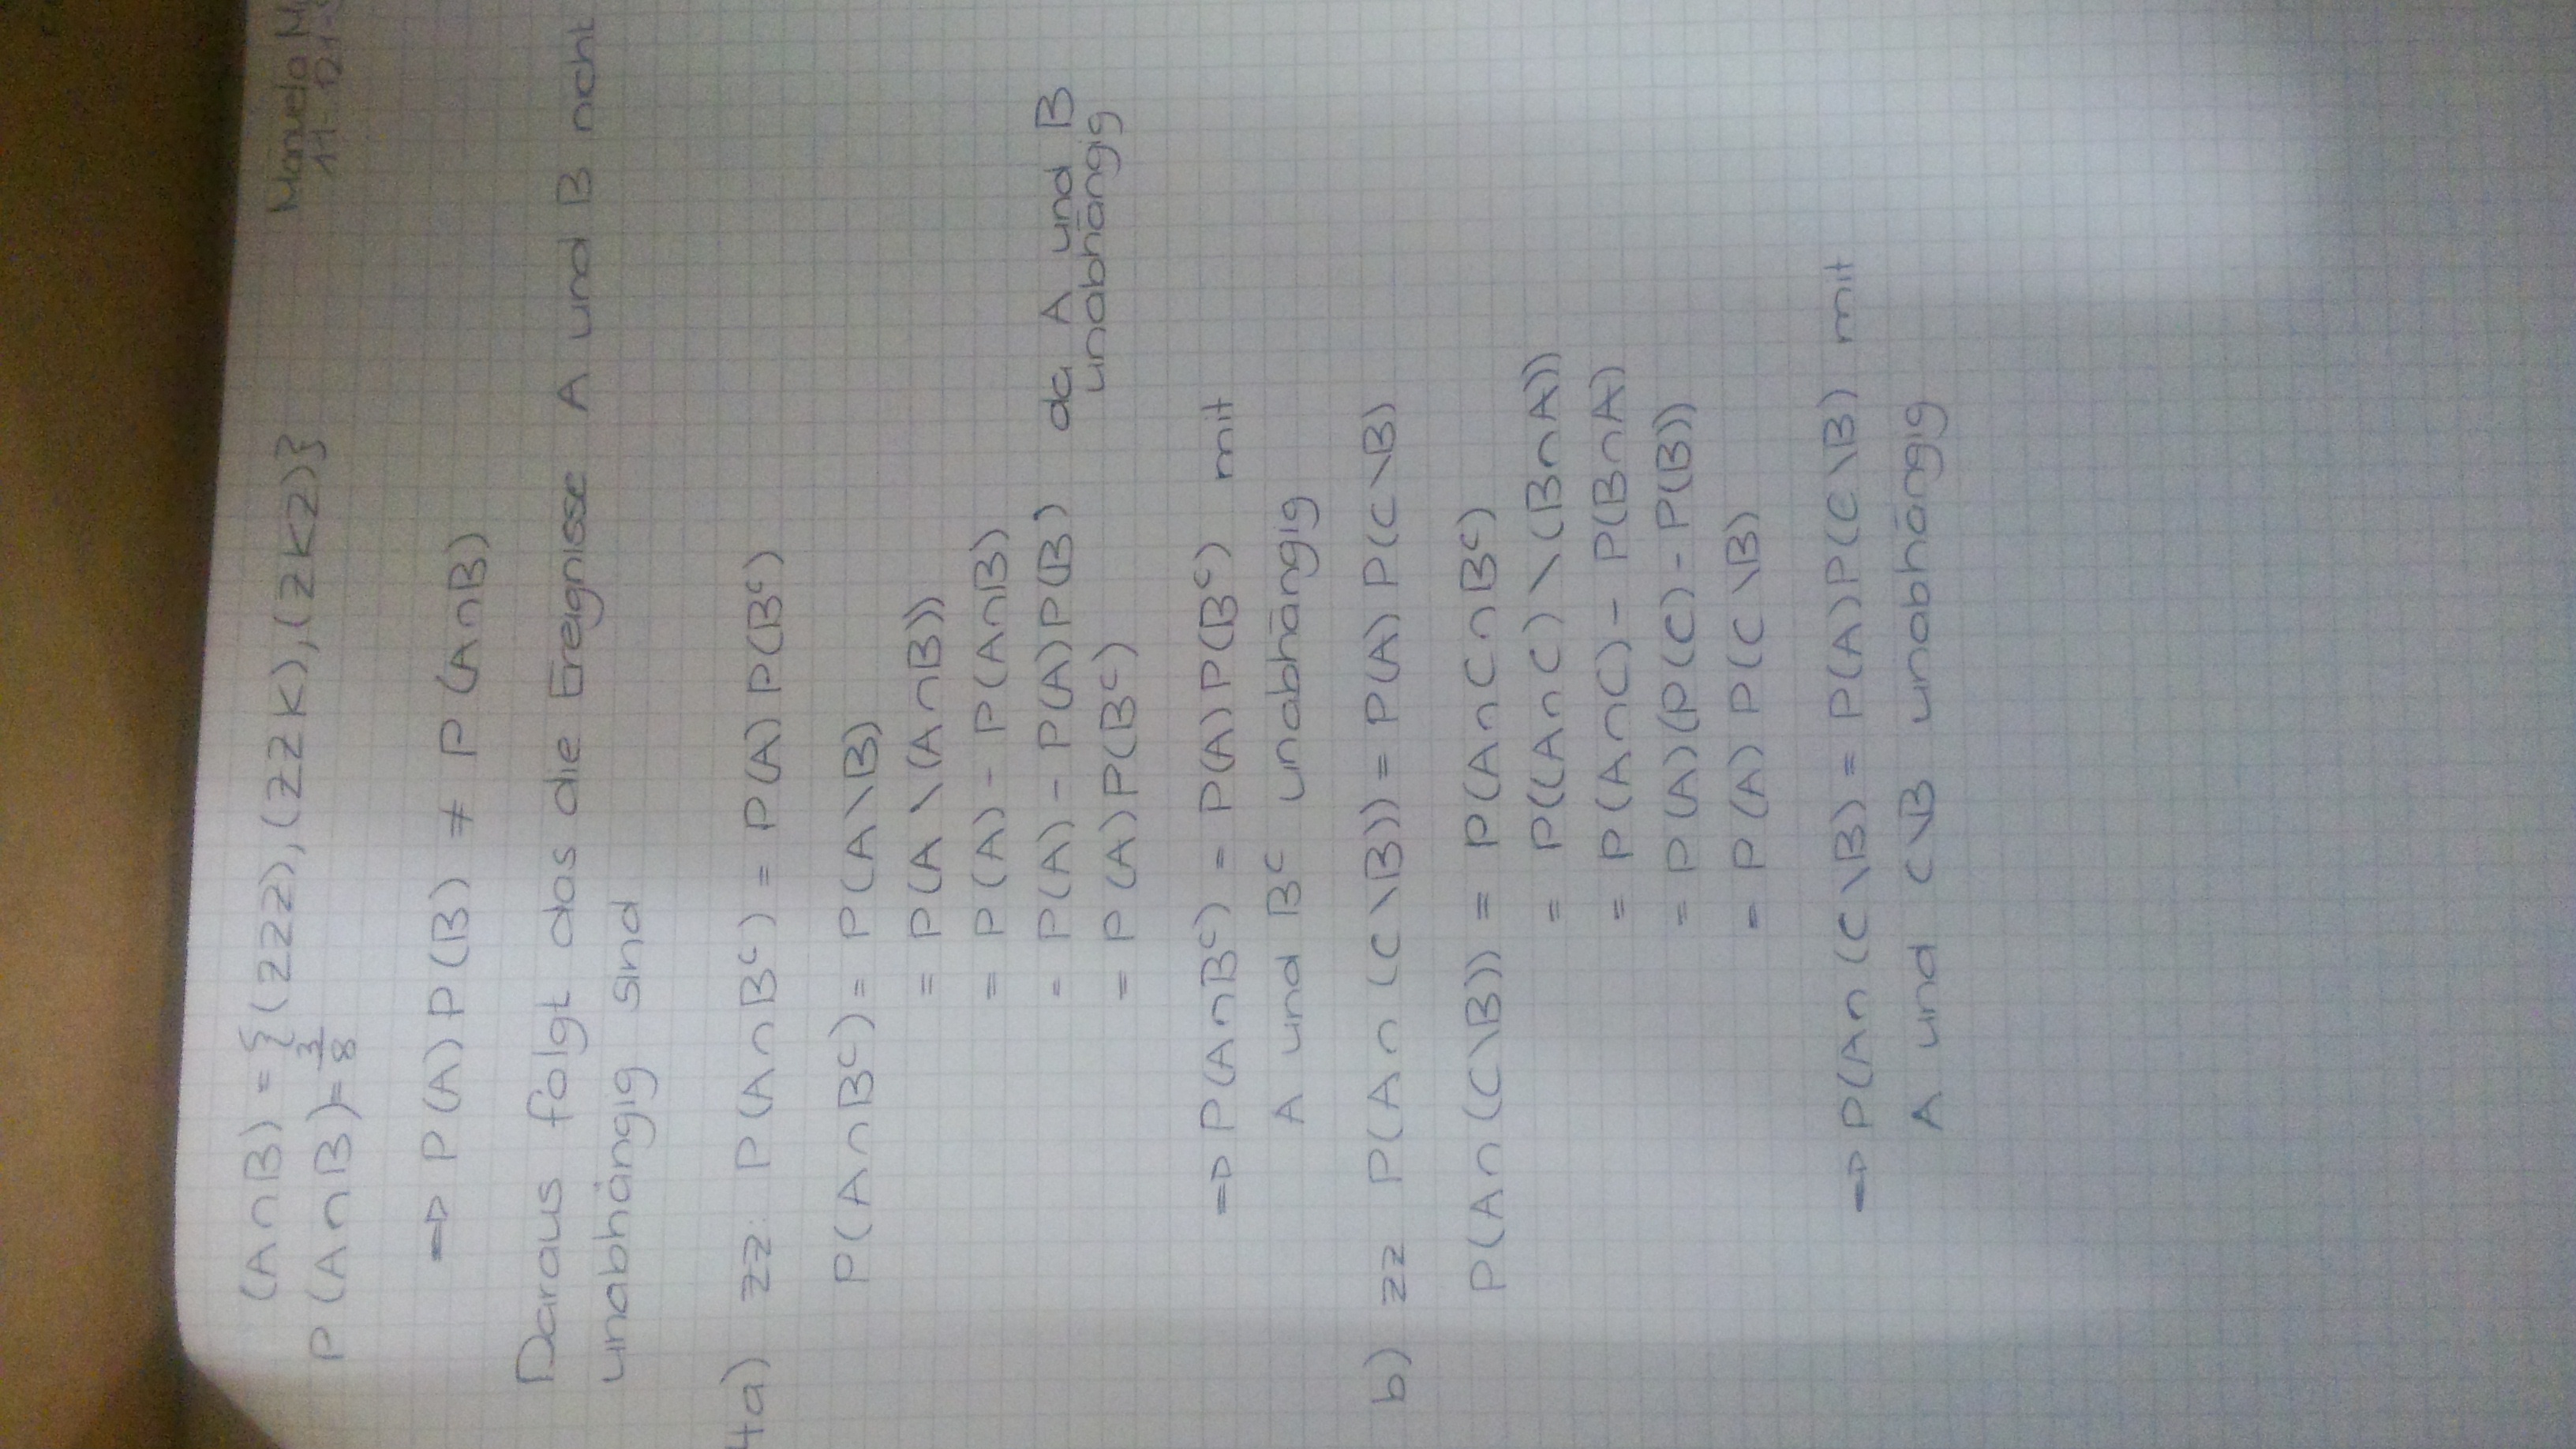 Manuela
(A∩B) = {(ZZZ),(ZZK),(ZKZ)}
P(A∩B) = 3/8
⇒ P(A)P(B) ≠ P(A∩B)
Daraus folgt das die Ereignisse A und B ncht
unabhängig sind
4a) ZZ: P(A∩Bᶜ) = P(A)P(Bᶜ)
P(A∩Bᶜ) = P(A\B)
= P(A\(A∩B))
= P(A) - P(A∩B)
= P(A) - P(A)P(B) da A und B
unabhängig
= P(A)P(Bᶜ)
⇒ P(A∩Bᶜ) = P(A)P(Bᶜ) mit
A und Bᶜ unabhängig
b) ZZ P(A∩(C\B)) = P(A)P(C\B)
P(A∩(C\B)) = P(A∩C∩Bᶜ)
= P((A∩C)\(B∩A))
= P(A∩C) - P(B∩A)
= P(A)(P(C)-P(B))
= P(A)P(C\B)
⇒ P(A∩(C\B) = P(A)P(C\B) mit
A und C\B unabhängig